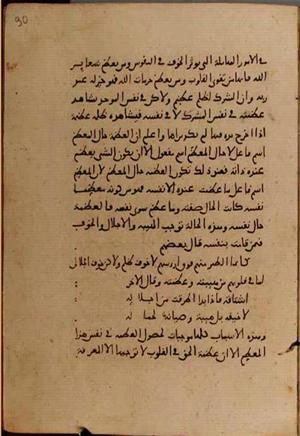 30
في الامور الهائلة التي تؤثر الخوف في النفوس ومن يعظم شعائر
الله فانها من تقوى القلوب ومن يعظم حرمات الله فهو خير له عند
ربه وان الشرك لظلم عظيم ولكن في نفس الموحد يشاهد
عظمته في نفس المشرك لا في نفسه فيشاهده ظلمة عظيمة
اذا اخرج يده فيها لم يكد يراها واعلم ان العظمة حال المعظم
اسم فاعل لا حال المعظم اسم مفعول الا ان يكون الشي يعظم
عنده ذاته فعند ذلك تكون العظمة حال المعظم لان المعظم
اسم فاعل ما عظمت عنده الا نفسه فهو من كونه معظما
نفسه كانت الحال صفته وما عظم سوى نفسه فالعظمة
حال نفسه وهذه الحالة توجب الهيبة والاجلال والخوف
فيمن قامت بنفسه قال بعضهم
كانما الطير منهم فوق ارؤسهم لا خوف ظلم ولكن خوف اجلال
لما في قلوبهم من هيبته وعظمته وقال الاخر
اشتاقه فاذا بدا اطرقت من اجلاله
لا خيفة بل هيبة وصيانة لجماله
وهذه الاسباب كلها موجبات لحصول العظمة في نفس هذا
المعظم الا ان عظمة الحق في القلوب لا توجبها الا المعرفة